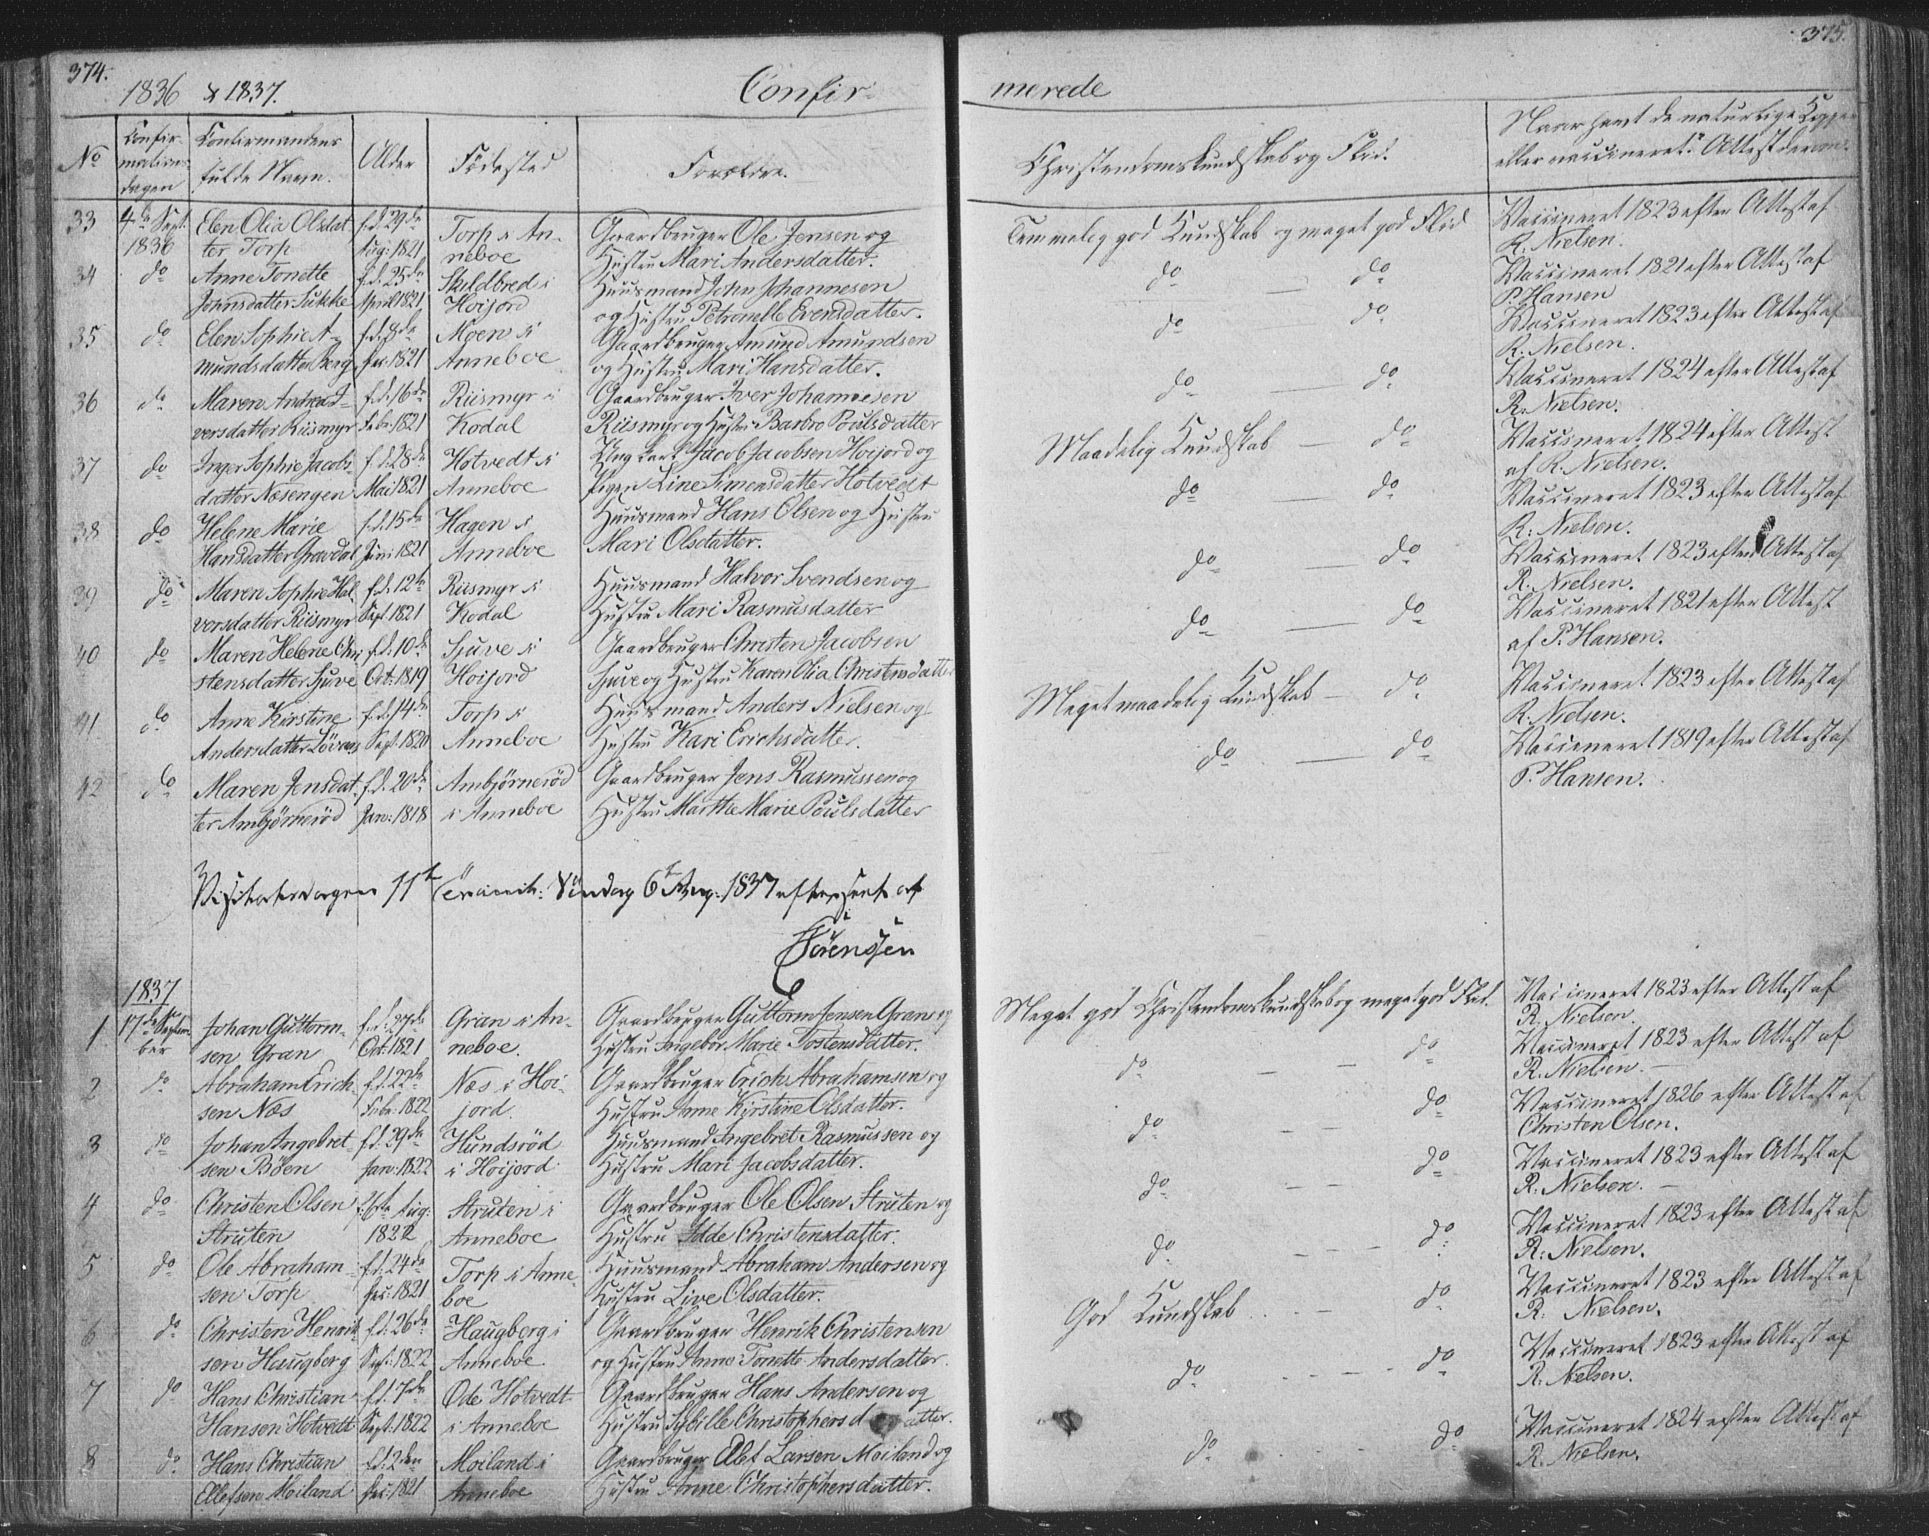 374.
1836 & 1837.
Confir-
No
Confir-
mations-
dagen
Confirmandens
fulde Navn.
Alder
Fødested
Forældre.
33
4de Sept.
1836
Elen Olia Olsdat-
ter Torp
f. d. 29de
Aug: 1821
Torp i An-
neboe
Gaardbruger Ole Jensen og
Hustru Mari Andersdatter.
34
do
Anne Tonette
Johnsdatter Sukke
f. d. 25de
April 1821
Skuldbred i
Hoijord
Huusmand John Johannesen
og Hustru Petronelle Evensdatter.
35
do
Elen Sophie A-
mundsdatter Berg
f. d. 8de
1821
Moen i
Anneboe
Gaardbruger Amund Amundsen
og Hustru Mari Hansdatter.
36
do
Maren Andrea I-
versdatter Riismyr
f. d. 16de
Febr: 1821
Riismyr i
Kodal
Gaardbruger Iver Johannesen
Riismyr og Hustru Barbro Poulsdatter
37
do
Inger Sophie Jacobs-
datter Næsengen
f. d. 28de
Mai 1821
Hotvedt i
Anneboe
Ung Karl Jacob Jacobsen Hoijord og
Pigen Line Simensdatter Hotvedt
38
do
Helene Marie
Hansdatter Gravdal
f. d. 15de
Juni 1821
Hagen i
Anneboe
Huusmand Hans Olsen og Hustru
Mari Olsdatter.
39
do
Maren Sophie Hal-
vorsdatter Riismyr
f. d. 12te
Sept 1821
Riismyr i
Kodal
Huusmand Halvor Svendsen og
Hustru Mari Rasmusdatter
40
do
Maren Helene Chri-
stensdatter Sjuve
f. d. 10de
Oct: 1819
Sjuve i
Hoijord
Gaardbruger Christen Jacobsen
Sjuve og Hustru Karen Olia Christensdatter
41
do
Anne Kirstine
Andersdatter Løvaas
f. d. 14de
Sept: 1820
Torp i
Anneboe
Huusmand Anders Nielsen og
Hustru Kari Erichsdatter.
42
do
Maren Jensdat-
ter Ambjørnerød
f. d. 20de
Jan: 1818
Ambjørnerød
i Anneboe
Gaardbruger Jens Rasmussen og
Hustru Marthe Marie Poulsdatter
Visitatsdagen 11te Søndag 6te Aug: 1837 efterseet af
Sørenssen
1837
1
17de Septem-
ber
Johan Guttorm-
sen Gran
f. d. 27de
Oct: 1821
Gran i An-
neboe.
Gaardbruger Guttorm Jensen Gran og
Hustru Ingebor Marie Tostensdatter.
2
do
Abraham Erich-
sen Næs
f. d. 22de
Febr: 1822
Næs i Hoi-
jord.
Gaardbruger Erich Abrahamsen og
Hustru Anne Kirstine Olsdatter.
3
do
Johan Ingebret-
sen Bøen
f. d. 29de
Jan: 1822
Hundsrød
i Hoijord
Huusmand Ingebret Rasmussen og
Hustru Mari Jacobsdatter.
4
do
Christen Olsen
Struten
f. 6te Aug:
1822
Struten i
Anneboe
Gaardbruger Ole Olsen Struten og
Hustru Idde Christensdatter.
5
do
Ole Abraham-
sen Torp
f. d. 24de
1821
Torp i Anne-
boe
Huusmand Abraham Andersen og
Hustru Live Olsdatter.
6
do
Christen Henrik-
sen Haugberg
f. d. 26de
Sept: 1822
Haugberg i
Anneboe
Gaardbruger Henrik Christensen
og Hustru Anne Tonette Andersdatter.
7
do
Hans Christian
Hansen Hotvedt
f. d. 7de
Sept: 1822
Øde Hotvedt
i Anneboe
Gaardbruger Hans Andersen og
Hustru Sibille Christophersdatter.
8
do
Hans Christian
Ellefsen Moiland
f. d. 2den
1821
Moiland i
Anneboe
Gaardbruger Elef Larsen Moiland og
Hustru Anne Christophersdatter.
375.
merede
Christendomskundskab og Flid.
Naar havt de naturlige Kopper
eller vaccineret. Attest derom.
Temmelig god Kundskab og meget god Flid
Vaccineret 1823 efter Attest af
R. Nielsen.
do — do
Vaccineret 1821 efter Attest af
P. Hansen
do — do
Vaccineret 1823 efter Attest af
R. Nielsen.
do — do
Vaccineret 1824 efter Attest af
R. Nielsen.
Maadelig Kundskab — do
Vaccineret 1824 efter Attest
af R. Nielsen.
do — do
Vaccineret 1823 efter Attest af
R. Nielsen.
do — do
Vaccineret 1823 efter Attest af
R. Nielsen.
do — do
Vaccineret 1821 efter Attest
af P. Hansen.
Meget maadelig Kundskab — do
Vaccineret 1823 efter Attest af
R. Nielsen.
do — do
Vaccineret 1819 efter Attest af
P. Hansen.
Meget god Christendomskundskab og meget god Flid.
Vaccineret 1823 efter Attest af
R. Nielsen
do — — do
Vaccineret 1823 efter Attest af
R. Nielsen. —
do — — do
Vaccineret 1826 efter Attest af
Christen Olsen.
do — — do
Vaccineret 1823 efter Attest af
R. Nielsen. —
do — — — do
Vaccineret 1823 efter Attest af
R: Nielsen.
God Kundskab — do
Vaccineret 1823 efter Attest af
R. Nielsen.
do — — do
Vaccineret 1823 efter Attest af
R. Nielsen.
do — — do
Vaccineret 1824 efter Attest af
R. Nielsen.